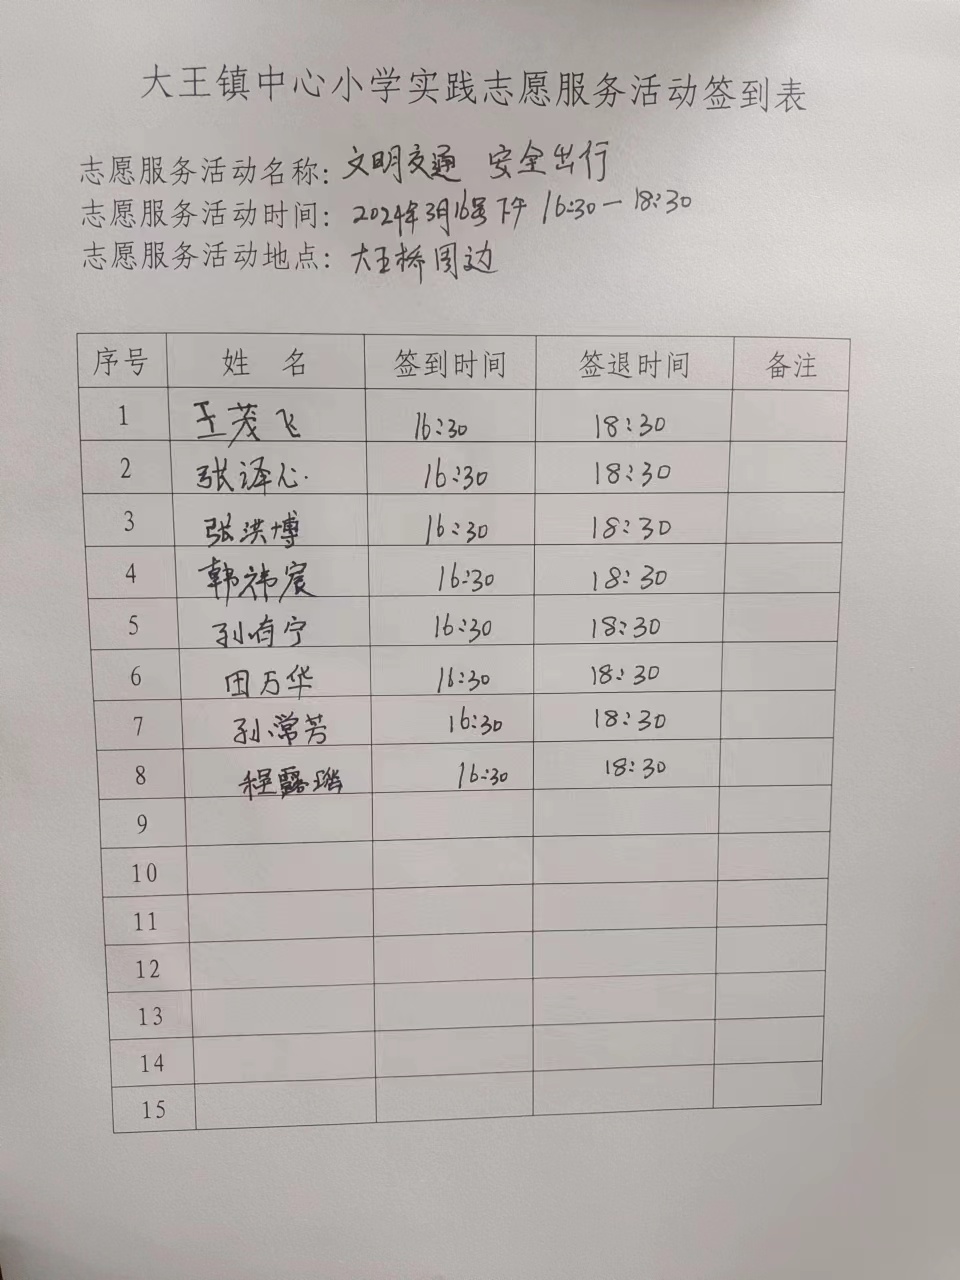 大王镇中心小学实践志愿服务活动签到表
志愿服务活动名称：文明交通 安全出行
志愿服务活动时间：2024年3月16号下午 16:30－18:30
志愿服务活动地点：大王桥周边
序号 姓 名 签到时间 签退时间 备注
1 王茂飞 16:30 18:30
2 张泽心 16:30 18:30
3 张洪博 16:30 18:30
4 韩祎宸 16:30 18:30
5 16:30 18:30
6 田万华 16:30 18:30
7 孙常芳 16:30 18:30
8 16:30 18:30
9
10
11
12
13
14
15